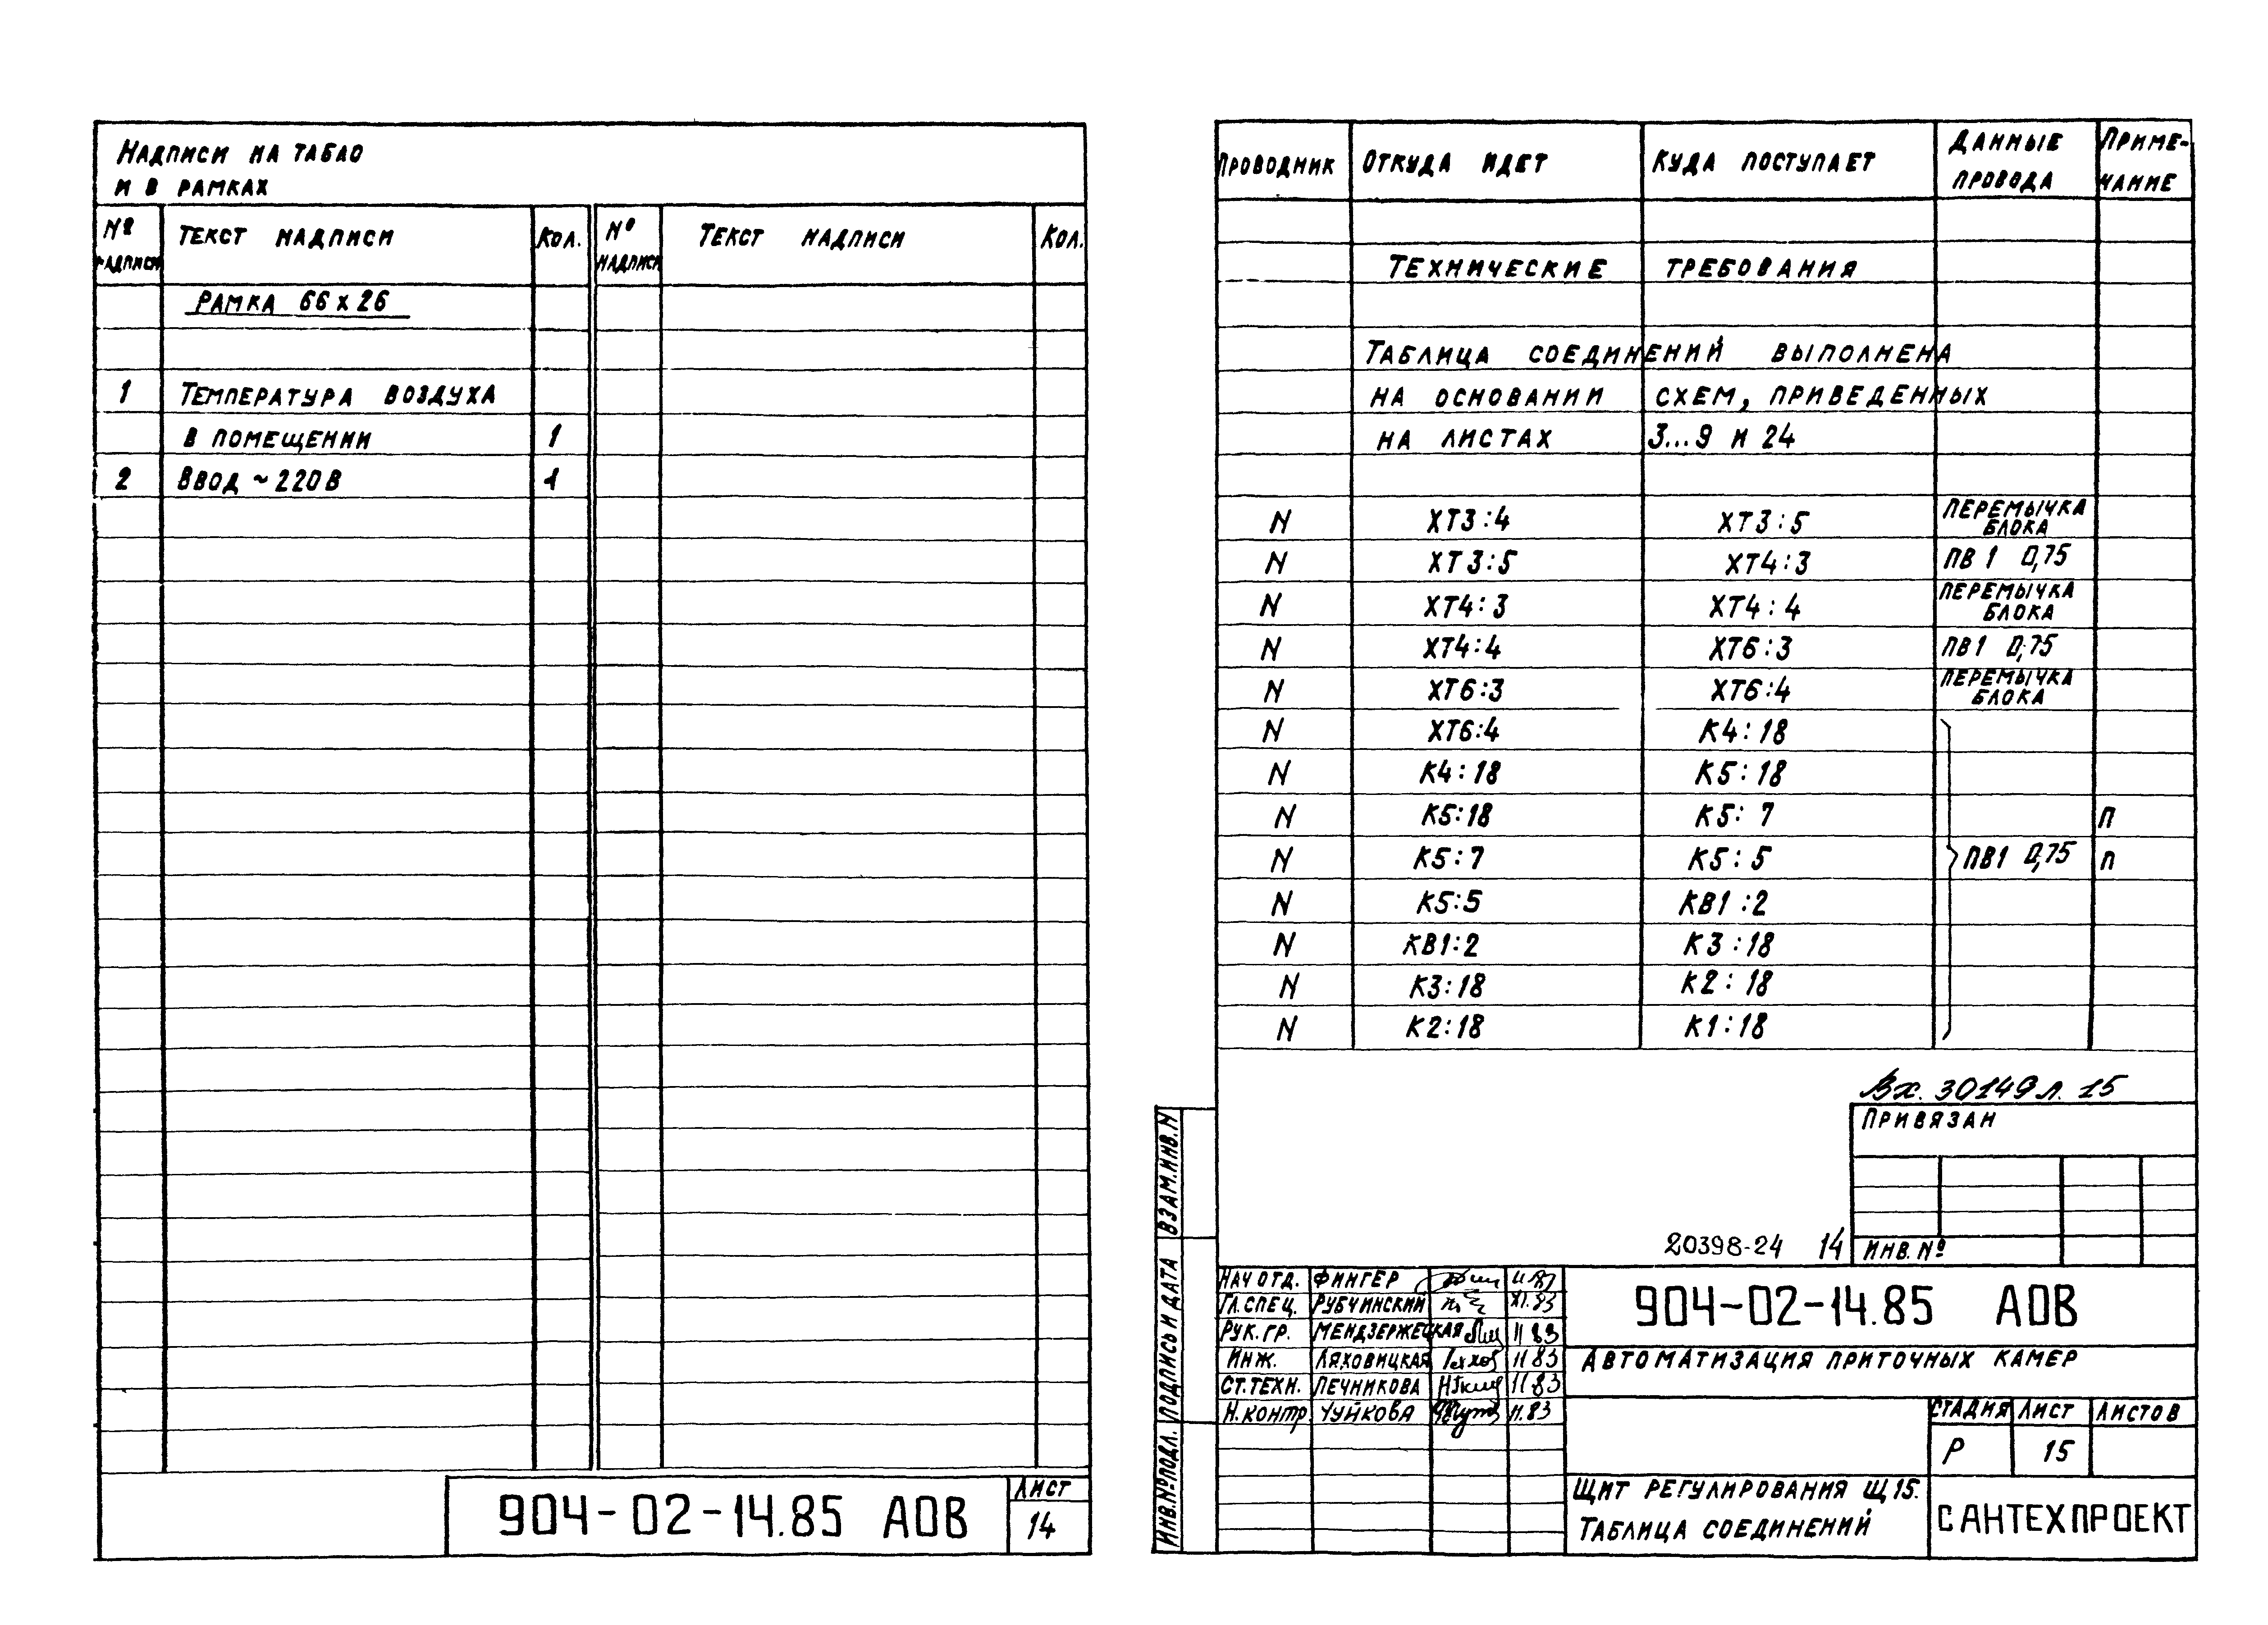 Надписи на табло
и в рамках
№ надписи Текст надписи Кол. № надписи Текст надписи Кол.
Рамка 66х26
1 Температура воздуха
в помещении 1
2 Ввод ~220В 1
904-02-14.85 АОВ
Лист
14
Проводник Откуда идет Куда поступает Данные провода Примечание
Технические требования
Таблица соединений выполнена
на основании схем, приведенных
на листах 3...9 и 24
N ХТ3:4 ХТ3:5 Перемычка блока
N ХТ3:5 ХТ4:3 ПВ1 0,75
N ХТ4:3 ХТ4:4 Перемычка блока
N ХТ4:4 ХТ6:3 ПВ1 0,75
N ХТ6:3 ХТ6:4 Перемычка блока
N ХТ6:4 К4:18
N К4:18 К5:18
N К5:18 К5:7 П
N К5:7 К5:5 ПВ1 0,75 П
N К5:5 КВ1:2
N КВ1:2 К3:18
N К3:18 К2:18
N К2:18 К1:18
Вх. 30149 л. 15
Привязан
Инв. №
20398-24 14
Взам. инв. N
Подпись и дата
Инв. № подл.
Нач отд. Фингер 11.83
Гл. спец. Рубчинский XI.83
Рук. гр. Мендзержецкая 11 83
Инж. Ляховицкая 11 83
Ст. техн. Печникова 11.83
Н. контр Чуйкова 11.83
904-02-14.85 АОВ
Автоматизация приточных камер
Стадия Лист Листов
Р 15
Щит регулирования Щ15.
Таблица соединений
Сантехпроект